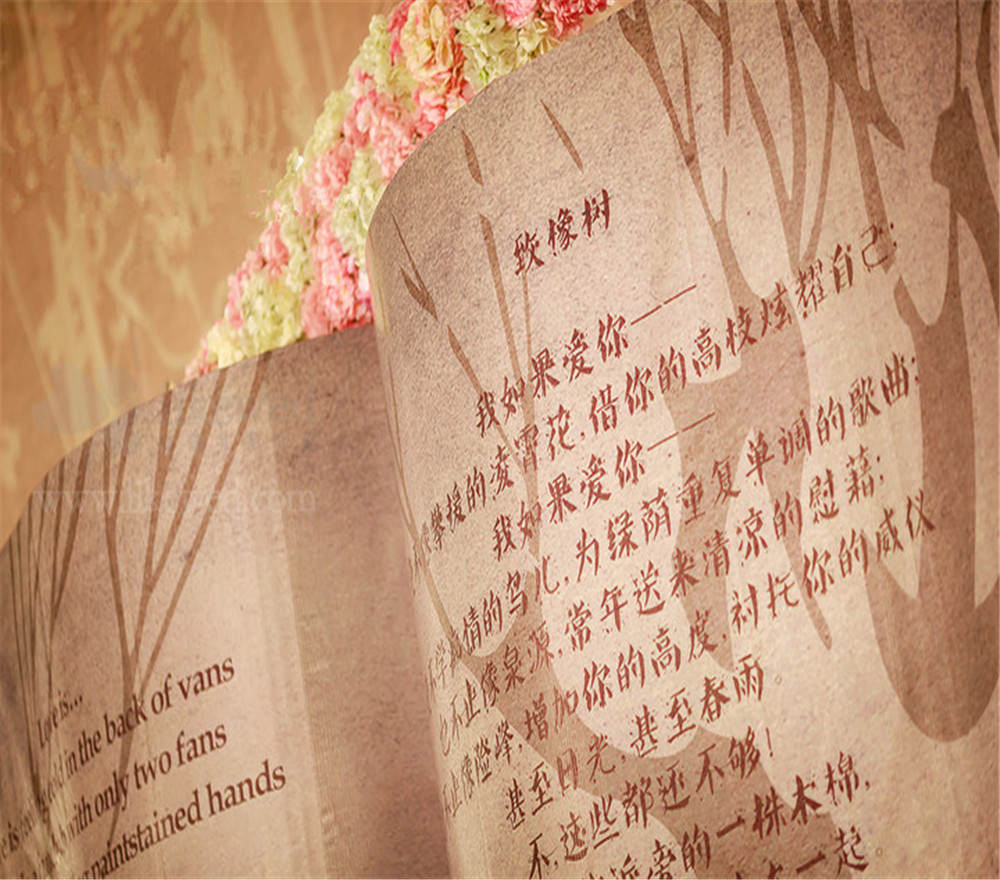 Love is...
in the back of vans
with only two fans
paintstained hands
致橡树
我如果爱你——
攀援的凌霄花,借你的高枝炫耀自己;
我如果爱你——
学 情的鸟儿,为绿荫重复单调的歌曲;
也不止像泉源,常年送来清凉的慰藉;
止像险峰,增加你的高度,衬托你的威仪
甚至日光,甚至春雨。
不,这些都还不够!
的一株木棉,
一起。